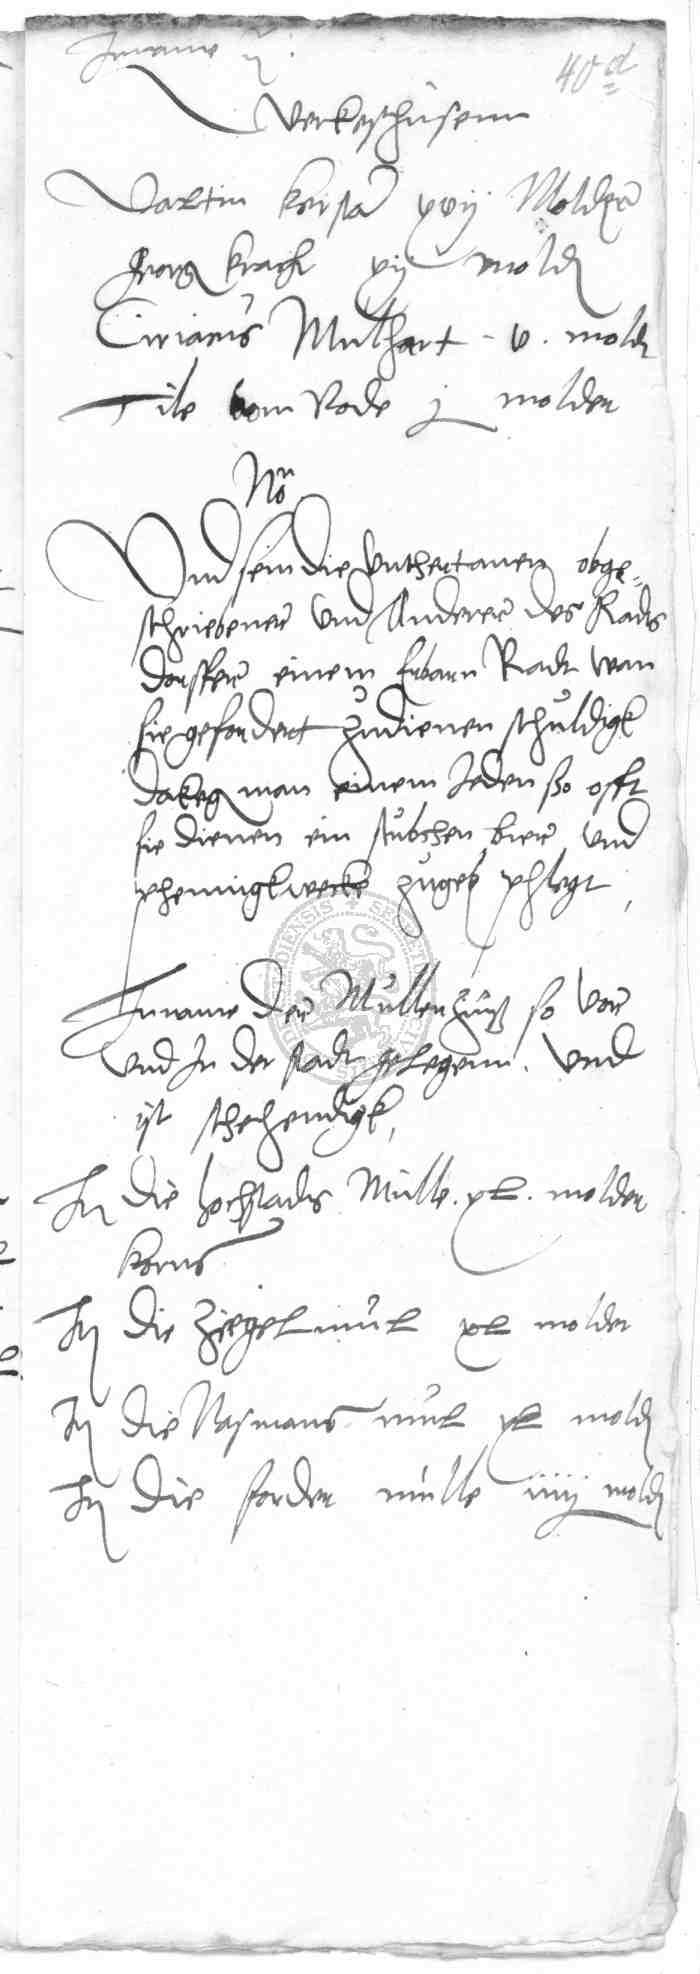 Inname
40d
Verkershusenn
Martin kersta xvij Molder
Jeorg krach vij mold
Ciriacus Mulhart - v. mold
Tile vom Rode j molder
No
Und sein die Unthertanen obge=
schriebener Und Anderer des Radts
dorffer einem Erbarn Radt wan
sie gefordert zudienen schuldigk
dakeg man einem Jeden sso offt
sie dienen ein stubchen bier Und
phennigkwecke zugeb phlegt,
Inname der Mullenzinß so vor
Und In der stadt gelegenn. Und
ist schehendigk,
It die hochstadts Mulle. xL. molder
korns
It die Ziegelmul xL molder
It die Rasmans mul xL mold
It die forder mulle iiij mold